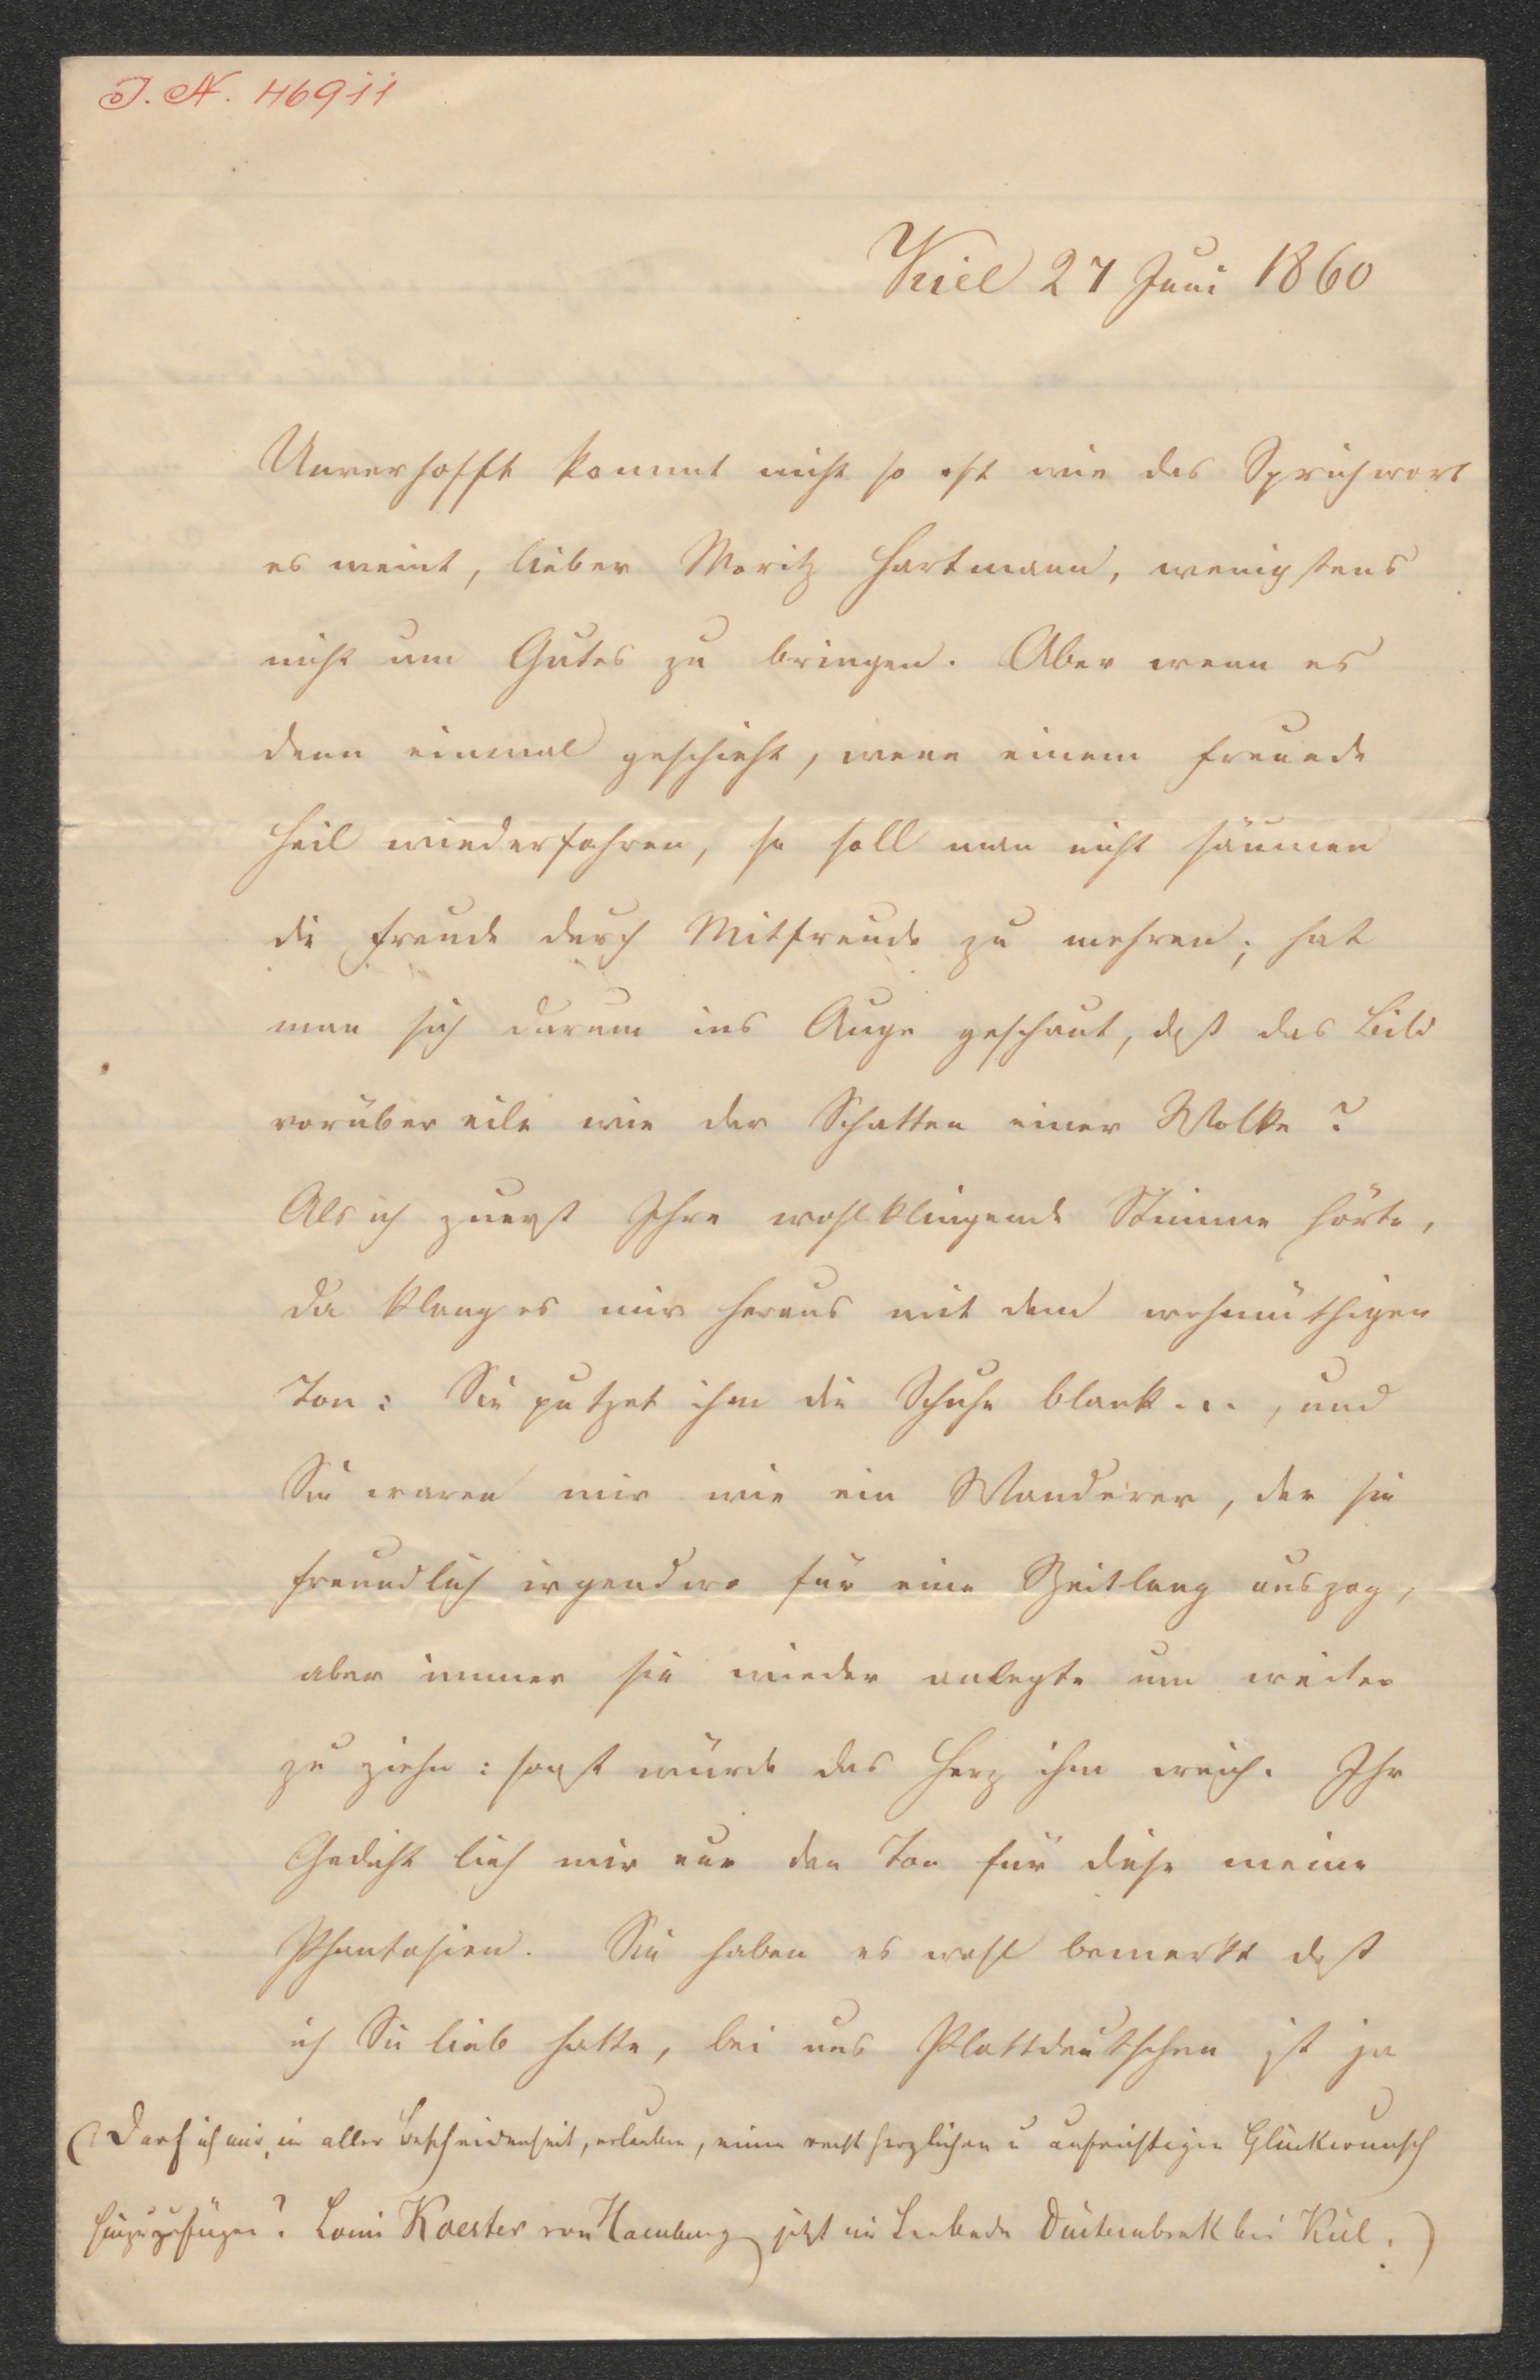 I. N. 46911
Kiel 27 Juni 1860
Unverhofft kommt nicht so oft wie das Sprichwort
es meint, lieber Moritz Hartmann, wenigstens
nicht um Gutes zu bringen. Aber wenn es
denn einmal geschieht, wenn einem Freunde
Heil wiederfahren, so soll man nicht säumen
die Freude durch Mitfreude zu mehren; hat
man sich darum ins Auge geschaut, daß das Bild
vorüber eile wie der Schatten einer Wolke?
Als ich zuerst Ihre wohlklingende Stimme hörte,
da klang es mir heraus mit dem wehmüthigen
Ton: Sie putzet ihm die Schuhe blank..., und
Sie waren mir wie ein Wanderer, der sie
freundlich irgendwo für eine Zeitlang auszog,
aber immer sie wieder anlegte um weiter
zu ziehn: sonst würde das Herz ihm weich. Ihr
Gedicht lieh mir nur den Ton für diese meine
Phantasien. Sie haben es wohl bemerkt daß
ich Sie lieb hatte, bei uns Plattdeutschen ist ja
(Darf ich mir, in aller Bescheidenheit, erlauben, einen recht herzlichen u aufrichtigen Glückwunsch
hinzuzufügen? Koester von Hamburg jetzt im Seebade Düsternbrook bei Kiel.)